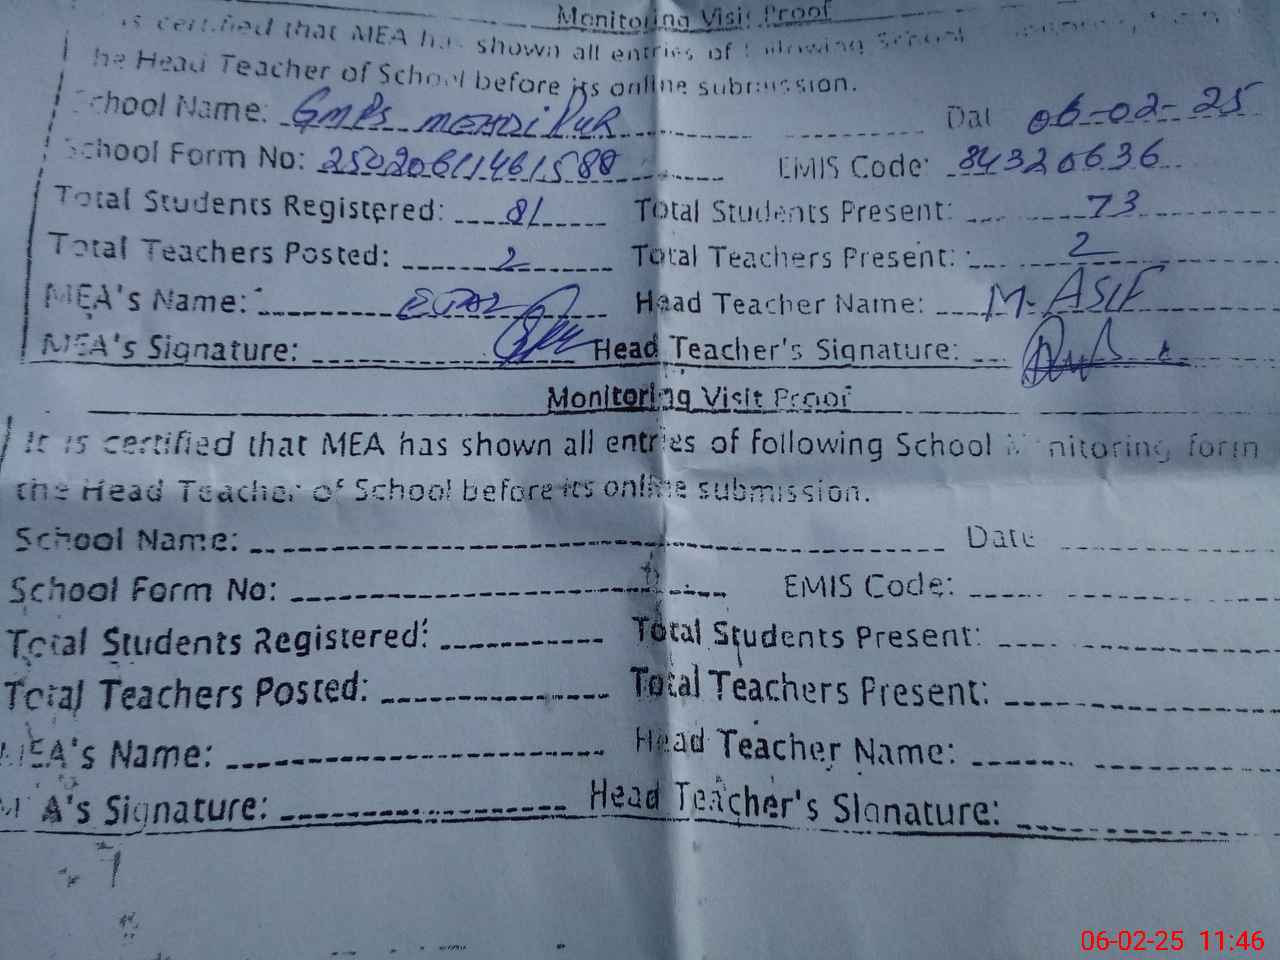 Monitoring Visit Proof
is certified that MEA has shown all entries of following School
the Head Teacher of School before its online submission.
School Name: GMPS MEHDI PUR Dat 06-02-25
School Form No: EMIS Code: 84320636
Total Students Registered: 81 Total Students Present: 73
Total Teachers Posted: 2 Total Teachers Present: 2
MEA's Name: Head Teacher Name: M. ASIF
MEA's Signature: Head Teacher's Signature:
Monitoring Visit Proof
It is certified that MEA has shown all entries of following School Monitoring form
the Head Teacher of School before its online submission.
School Name: Date
School Form No: EMIS Code:
Total Students Registered: Total Students Present:
Total Teachers Posted: Total Teachers Present:
MEA's Name: Head Teacher Name:
MEA's Signature: Head Teacher's Signature:
06-02-25 11:46